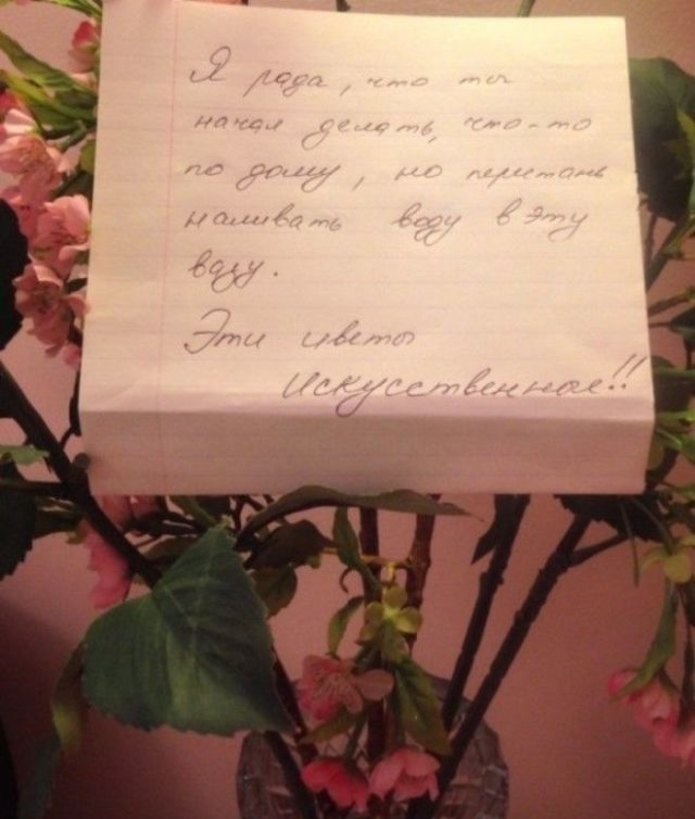 Я рада, что ты
начал делать, что-то
по дому, но перестань
наливать воду в эту
вазу.
Эти цветы
искусственные!!